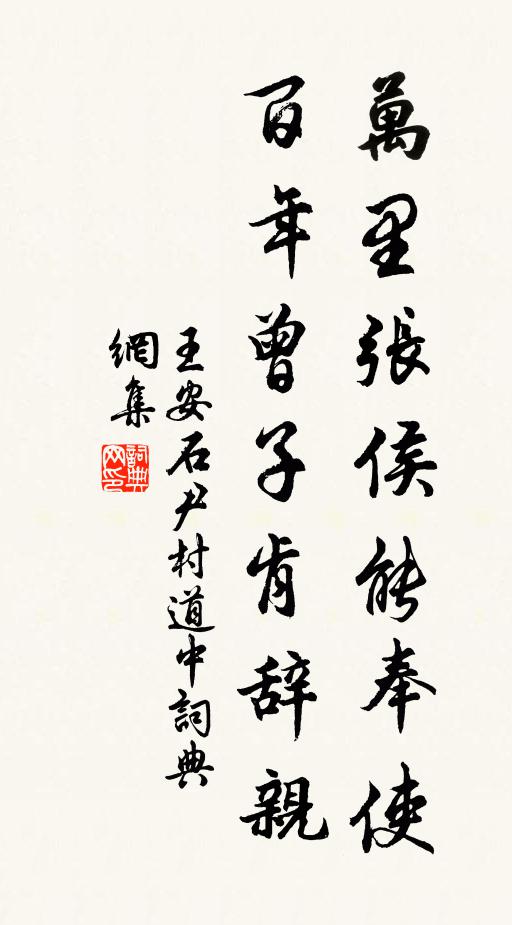 萬里張侯能奉使
百年曾子肯辞親
王安石尹村道中詞典
網集
詞典网印